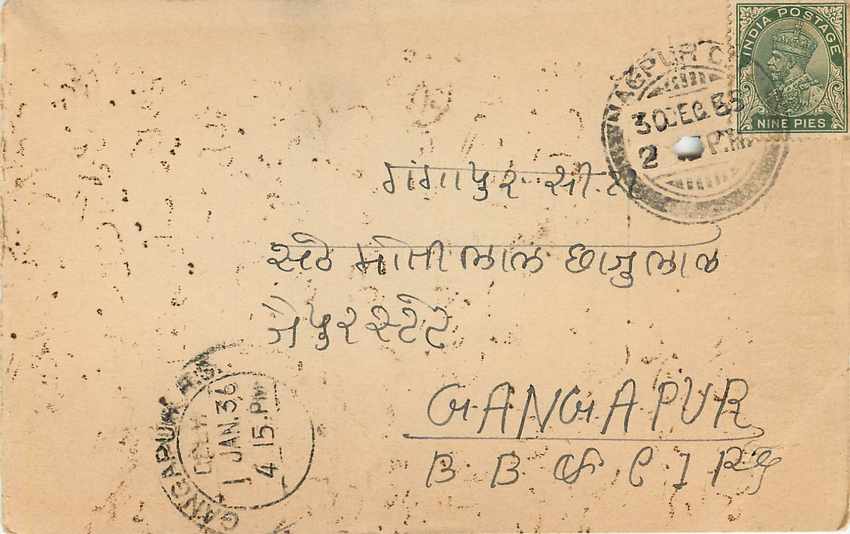 INDIA POSTAGE
NINE PIES
NAGPUR
30 DEC 35
2 P.M
गंगापुर सी.टी
सेठ मोतीलाल छाजुलाल
जैपुर स्टेट
GANGAPUR
B B & C I Ry
GANGAPUR R.S.
DELY
1 JAN. 36
4. 15. PM